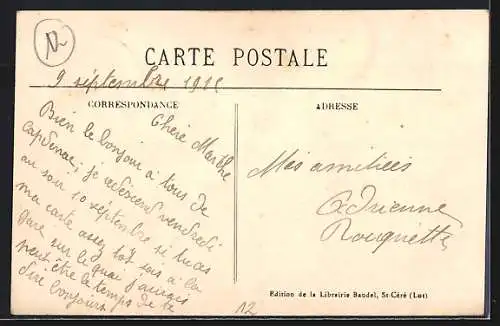 12
CARTE POSTALE
9 septembre 1911
CORRESPONDANCE
ADRESSE
Chère Marthe
Bien le bonjour à tous de
Capdenac, je redescend vendredi
au soir 10 septembre si tu as
ma carte assez tôt sois à la
Gare sur le quai j'aurais
peut être le temps de te
dire bonjour.
Mes amitiées
Adrienne
Rouquette
Edition de la Librairie Baudel, St-Céré (Lot)
12